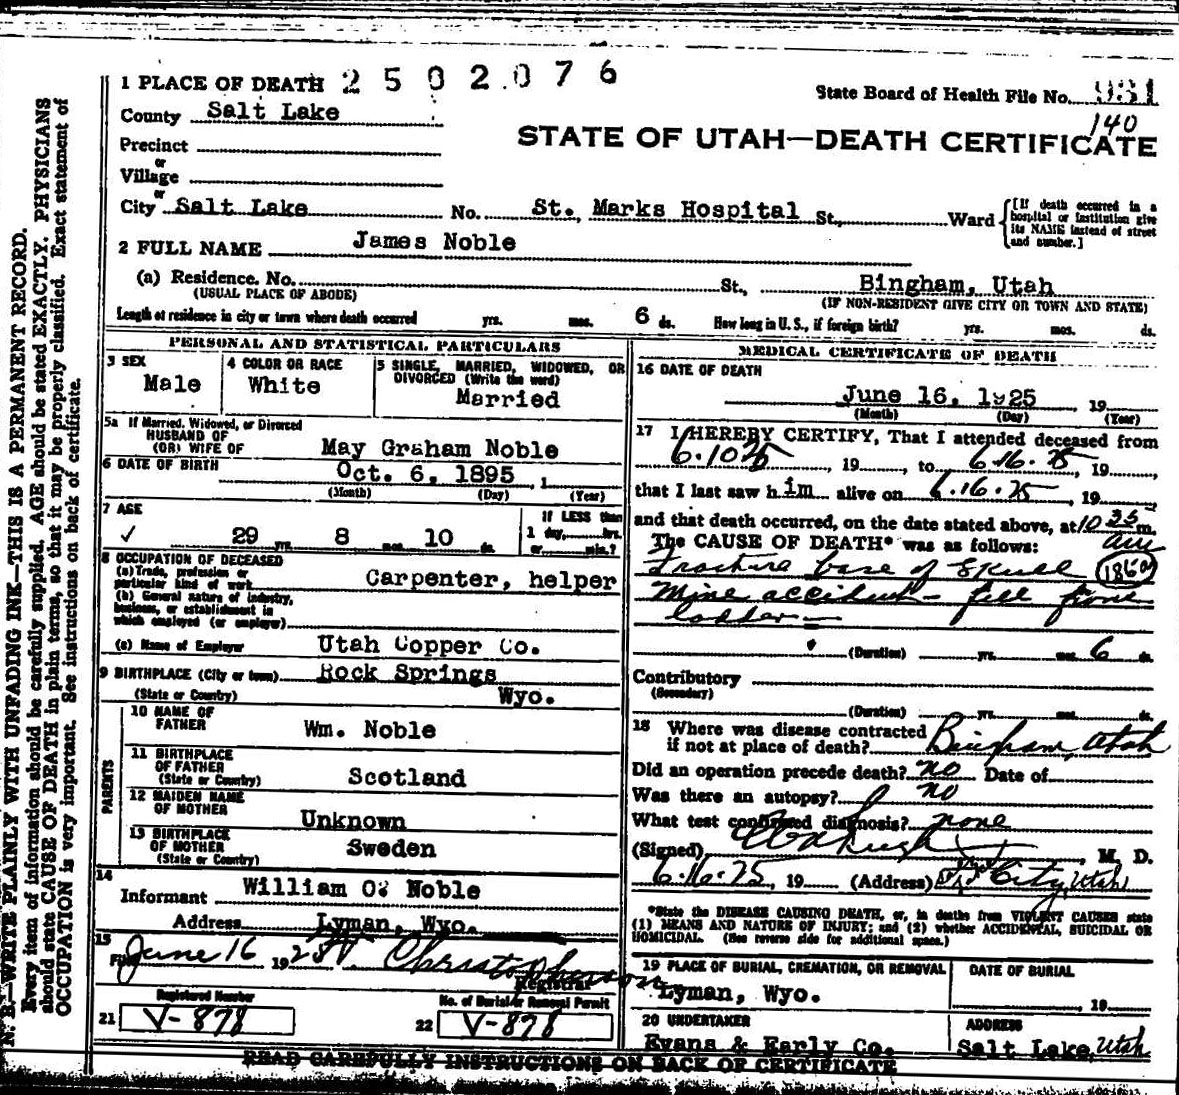 1 PLACE OF DEATH 2502076
State Board of Health File No. 931
County Salt Lake
140
STATE OF UTAH—DEATH CERTIFICATE
Precinct
or
Village
or
City Salt Lake No. St. Marks Hospital St., Ward
[If death occurred in a hospital or institution give its NAME instead of street and number.]
2 FULL NAME James Noble
(a) Residence. No. St., Bingham, Utah
(USUAL PLACE OF ABODE) (IF NON-RESIDENT GIVE CITY OR TOWN AND STATE)
Length of residence in city or town where death occurred yrs. mos. 6 ds. How long in U. S., if foreign birth? yrs. mos. ds.
PERSONAL AND STATISTICAL PARTICULARS
3 SEX Male
4 COLOR OR RACE White
5 SINGLE, MARRIED, WIDOWED, OR DIVORCED (Write the word) Married
5a If Married, Widowed, or Divorced
HUSBAND OF
(OR) WIFE OF May Graham Noble
6 DATE OF BIRTH Oct. 6, 1895, 1
(Month) (Day) (Year)
7 AGE
✓ 29 yrs. 8 mos. 10 ds.
If LESS than 1 day, hrs. or min.?
8 OCCUPATION OF DECEASED
(a) Trade, profession or particular kind of work Carpenter, helper
(b) General nature of industry, business, or establishment in which employed (or employer)
(c) Name of Employer Utah Copper Co.
9 BIRTHPLACE (City or town) Rock Springs
(State or Country) Wyo.
PARENTS
10 NAME OF FATHER Wm. Noble
11 BIRTHPLACE OF FATHER (State or Country) Scotland
12 MAIDEN NAME OF MOTHER Unknown
13 BIRTHPLACE OF MOTHER (State or Country) Sweden
14
Informant William O. Noble
Address Lyman, Wyo.
15
Filed June 16 1925
Registrar
Registered Number
21 V-878
No. of Burial or Removal Permit
22 V-878
MEDICAL CERTIFICATE OF DEATH
16 DATE OF DEATH
June 16, 1925, 19
(Month) (Day) (Year)
17 I HEREBY CERTIFY, That I attended deceased from
6.10.25, 19, to 6.16.25, 19,
that I last saw him alive on 6.16.25, 19
and that death occurred, on the date stated above, at 10 35 m.
am
The CAUSE OF DEATH* was as follows:
Fracture base of Skull (186a)
Mine accident - fell from
ladder
(Duration) yrs. mos. 6 ds.
Contributory
(Secondary)
(Duration) yrs. mos. ds.
18 Where was disease contracted
if not at place of death? Bingham, Utah
Did an operation precede death? no Date of
Was there an autopsy? no
What test confirmed diagnosis? none
(Signed) , M. D.
6.16.25, 19 (Address) City, Utah
*State the DISEASE CAUSING DEATH, or, in deaths from VIOLENT CAUSES state
(1) MEANS AND NATURE OF INJURY; and (2) whether ACCIDENTAL, SUICIDAL OR
HOMICIDAL. (See reverse side for additional space.)
19 PLACE OF BURIAL, CREMATION, OR REMOVAL
Lyman, Wyo.
DATE OF BURIAL
, 19
20 UNDERTAKER
Evans & Early Co.
ADDRESS
Salt Lake, Utah
READ CAREFULLY INSTRUCTIONS ON BACK OF CERTIFICATE
N. B.—WRITE PLAINLY WITH UNFADING INK—THIS IS A PERMANENT RECORD.
Every item of information should be carefully supplied. AGE should be stated EXACTLY. PHYSICIANS
should state CAUSE OF DEATH in plain terms, so that it may be properly classified. Exact statement of
OCCUPATION is very important. See instructions on back of certificate.